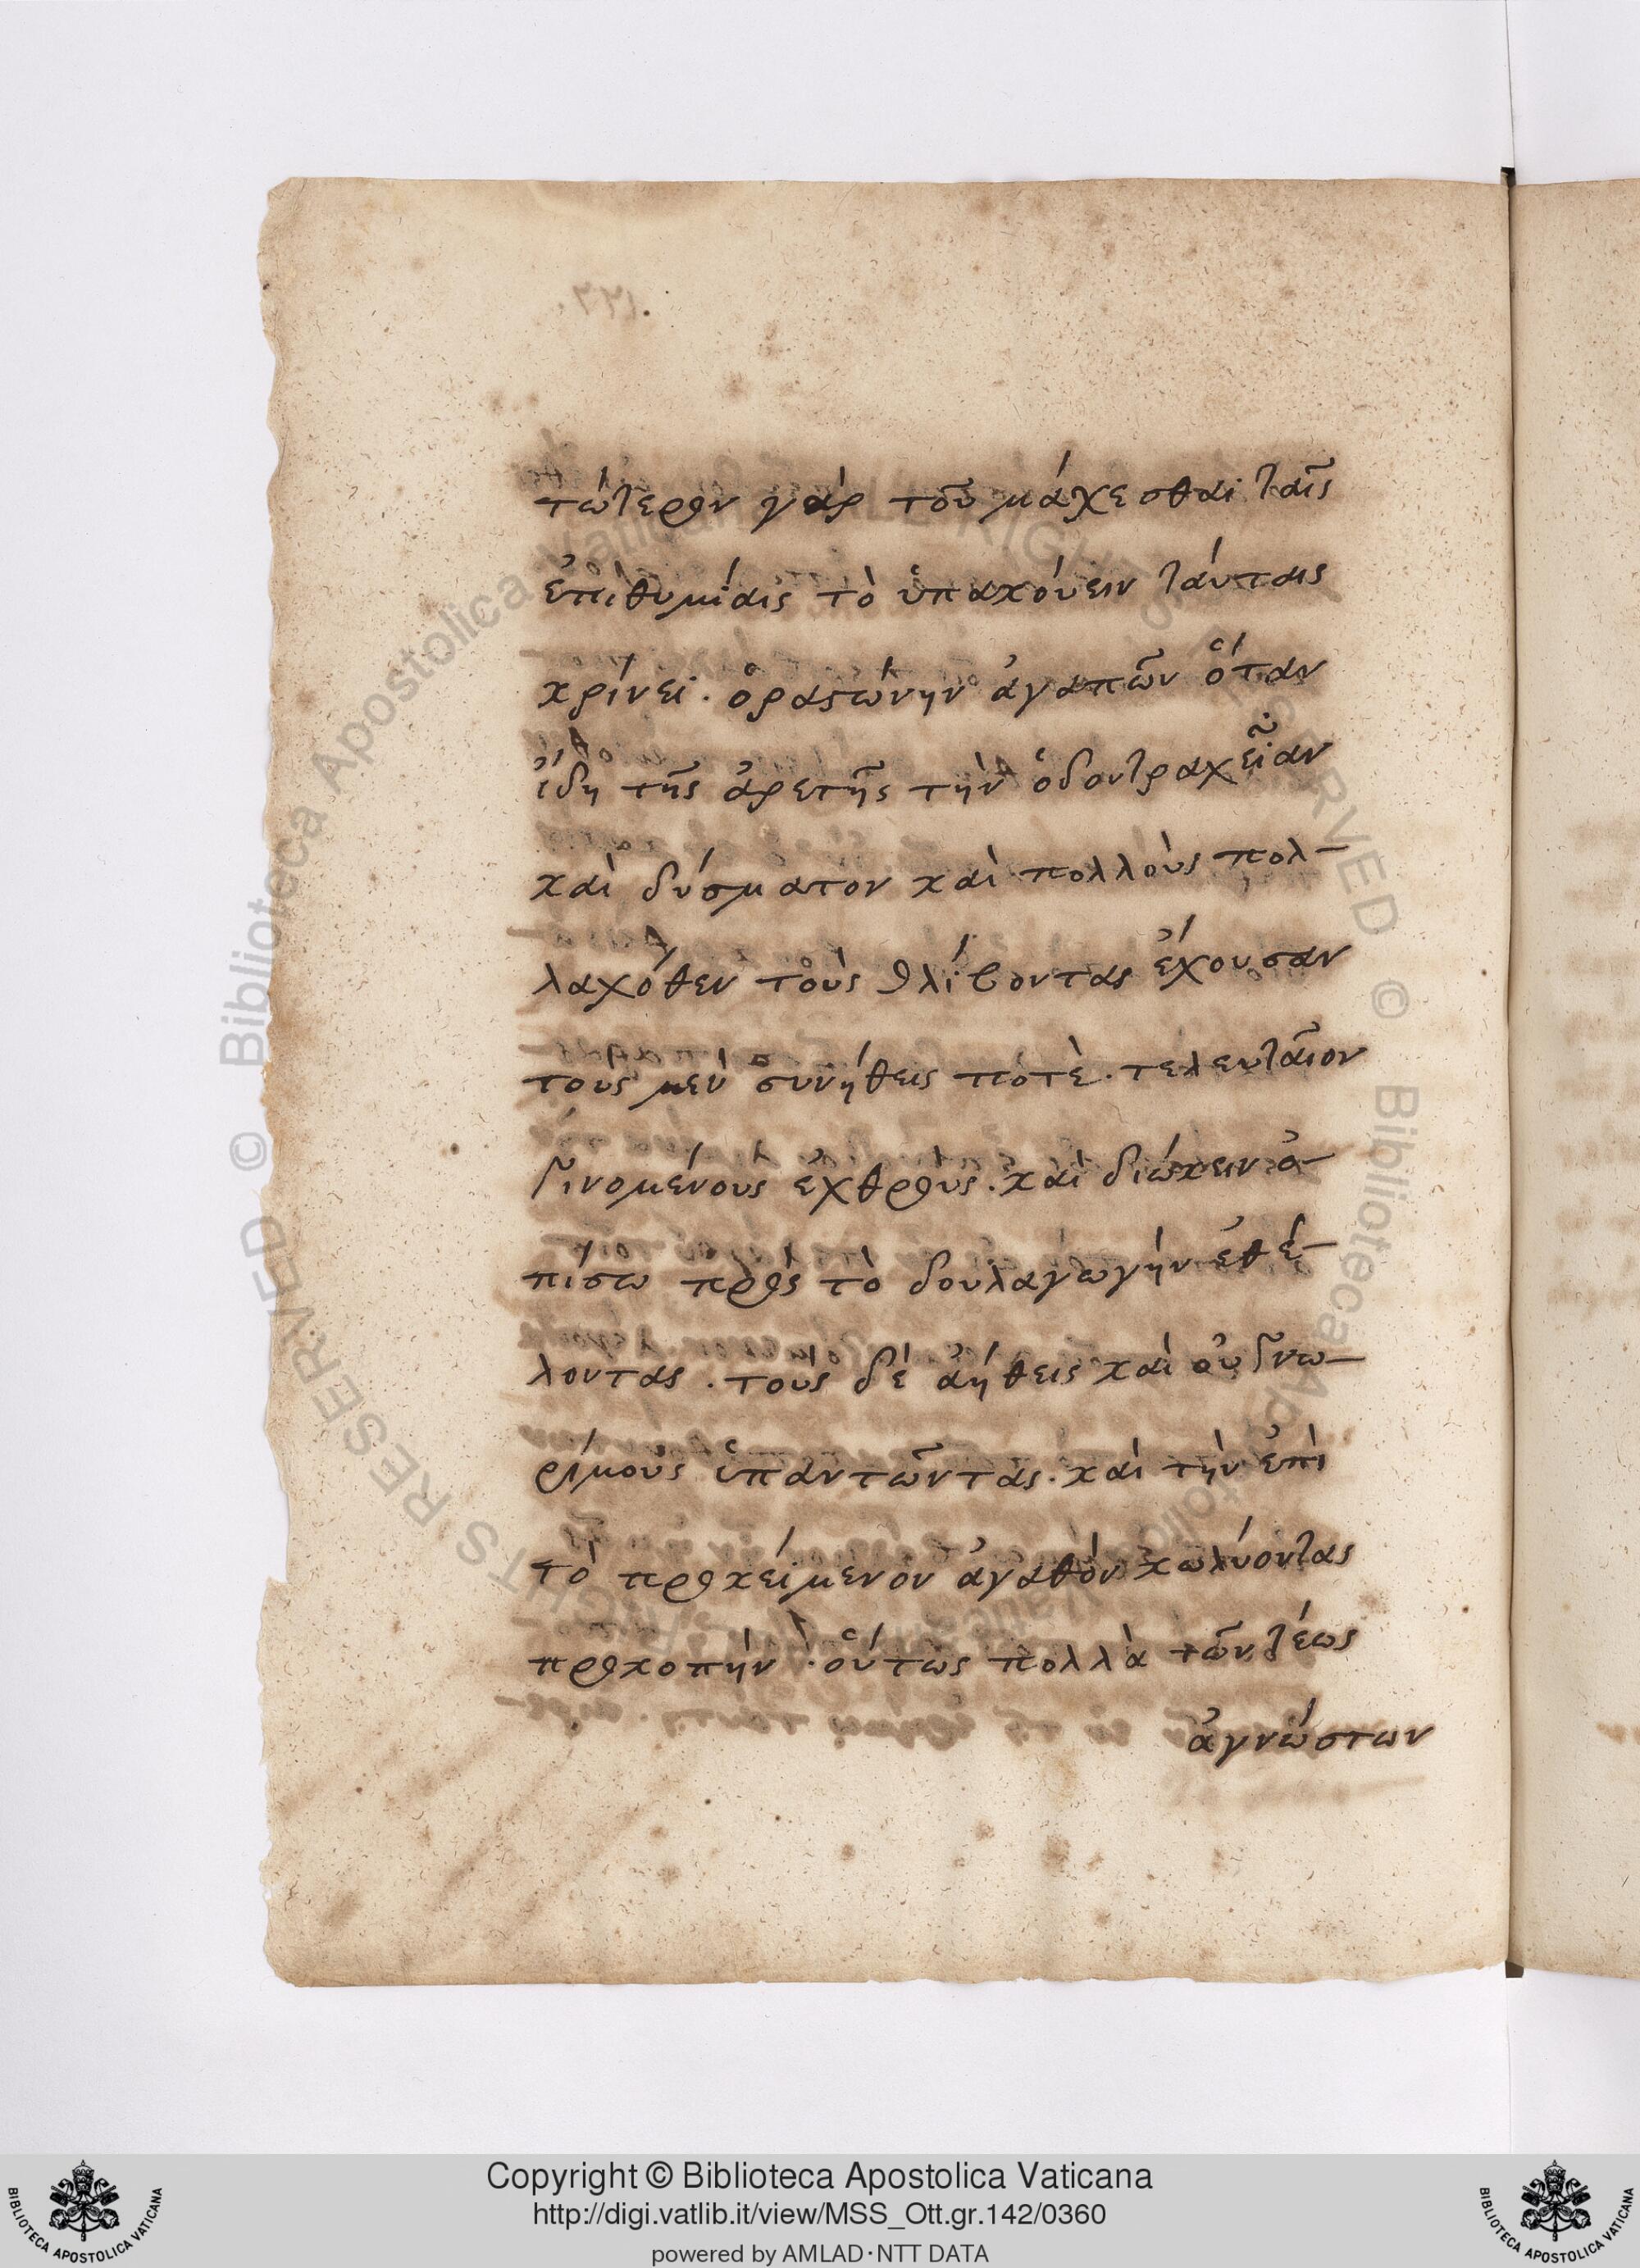 τώτερον γὰρ τοῦ μάχεσθαι ταῖς
ἐπιθυμίαις τὸ ὑπακούειν ταύταις
κρίνει. ὁ ραστώνην ἀγαπῶν ὅταν
ἴδη τῆς ἀρετῆς τὴν ὁδον τραχεῖαν
καὶ δύσματον καὶ πολλοὺς πολ-
λαχόθεν τοὺς θλίβοντας ἔχουσαν
τοὺς μὲν συνήθεις πότὲ. τελευταῖον
γινομένους ἐχθροὺς. καὶ διώκειν ὀ-
πίσω πρὸς τὸ δουλαγωγὴν ἐθέ-
λοντας. τοὺς δὲ ἀήθεις καὶ οὐ γνω-
ρίμους ὑπαντῶντας. καὶ τὴν ἐπὶ
τὸ προκείμενον ἀγαθὸν κωλύοντας
προκοπὴν. οὕτως πολλὰ τῶν τέως
ἀγνώστων
Copyright © Biblioteca Apostolica Vaticana
http://digi.vatlib.it/view/MSS_Ott.gr.142/0360
powered by AMLAD·NTT DATA
BIBLIOTECA APOSTOLICA VATICANA
BIBLIOTECA APOSTOLICA VATICANA